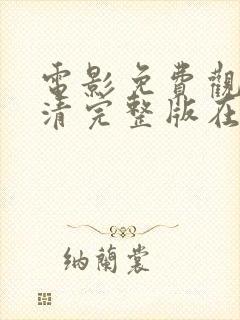 電影免費觀
清完整版在
納蘭裳